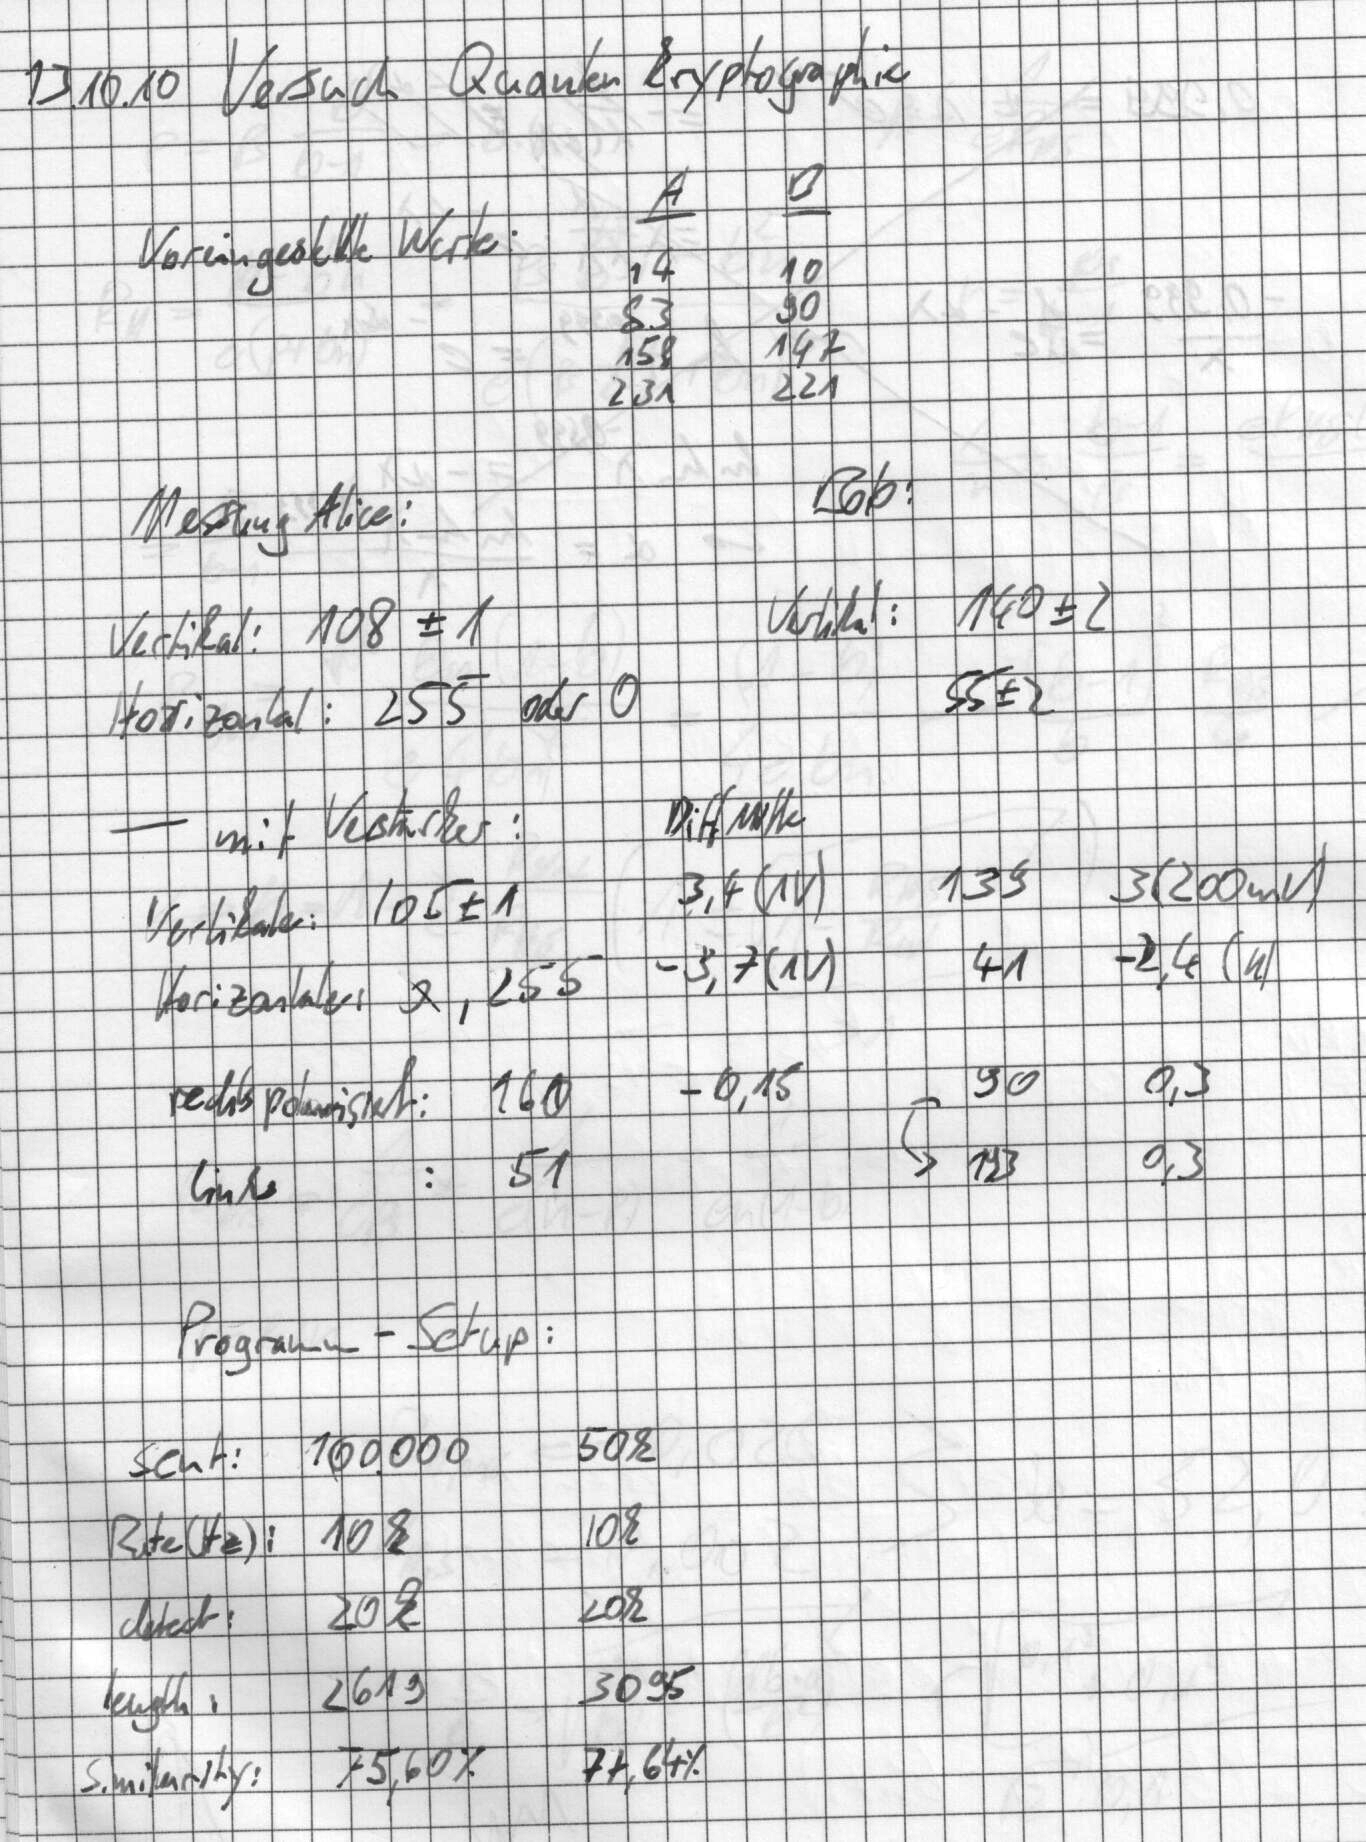 13.10.10 Versuch Quanten Kryptographie
A B
Voreingestellte Werte:
14 10
83 90
158 147
231 221
Messung Alice: Bob:
Vertikal: 108 ± 1 Vertikal: 140 ± 2
Horizontal: 255 oder 0 55 ± 2
— mit Verstärker: Diff
Vertikaler: 105 ± 1 3,4 (1V) 139 3 (200mV)
Horizontaler: 255 -3,7 (1V) 41 -2,4 (")
rechtspolarisiert: 160 -0,15 90 0,3
links : 51 0,3
Programm - Setup:
sent: 100.000 50k
Rate(Hz): 10k 10k
detect: 20k 20k
length: 2619 3095
Similarity: 75,60% 77,64%